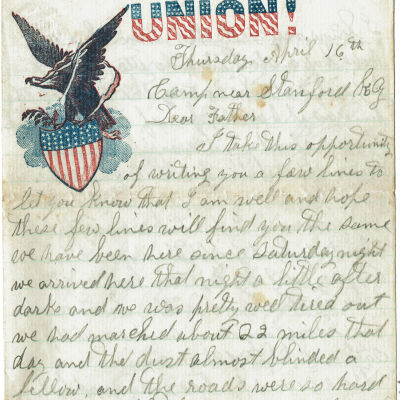 UNION!
Thursday April 16th
Camp near Stanford KY
Dear Father
I take this opportunity
of writing you a few lines to
let you know that I am well and hope
these few lines will find you the same
we have been here since Saturday night
we arrived here that night a little after
dark and we was pretty well tired out
we had marched about 22 miles that
day and the dust almost blinded a
fellow, and the roads were so hard